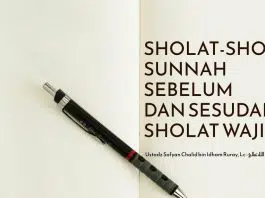 SHOLAT-SHO
SUNNAH
SEBELUM
DAN SESUDA
SHOLAT WAJI
Ustadz Sofyan Chalid bin Idham Ruray, Lc